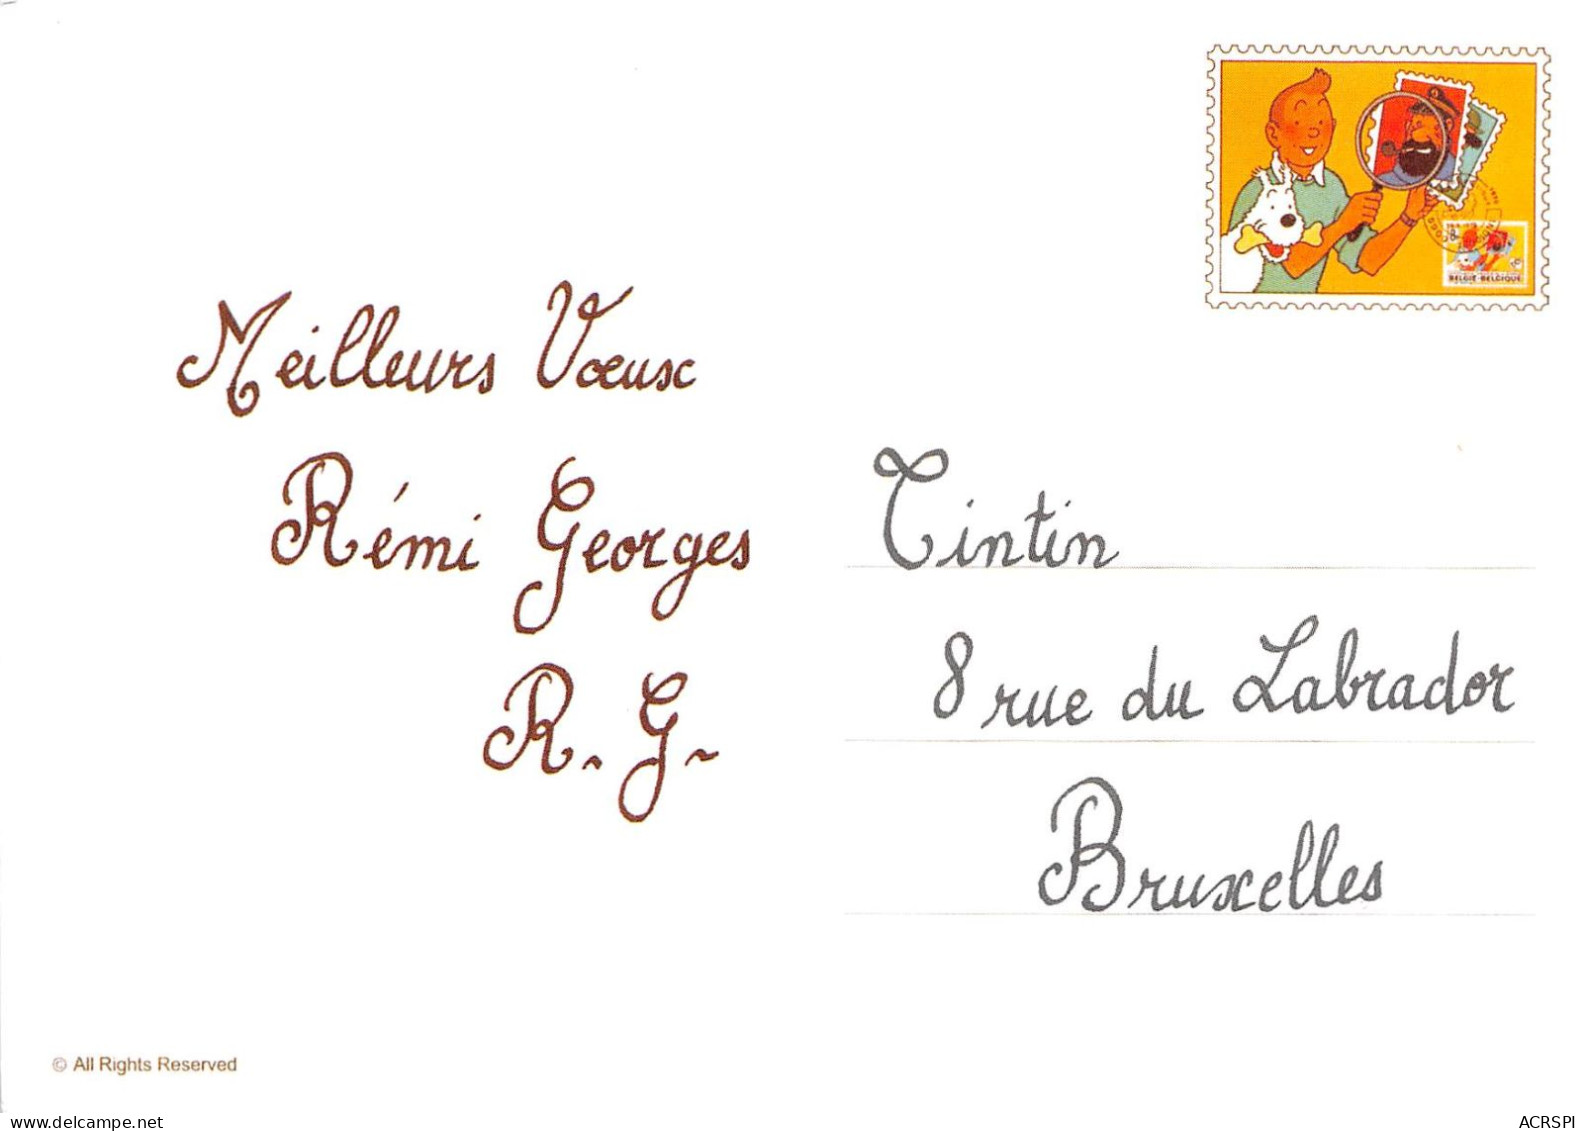 BELGIE-BELGIQUE
Meilleurs Vœux
Rémi Georges
R. G.
Tintin
8 rue du Labrador
Bruxelles
© All Rights Reserved
www.delcampe.net
ACRSPI